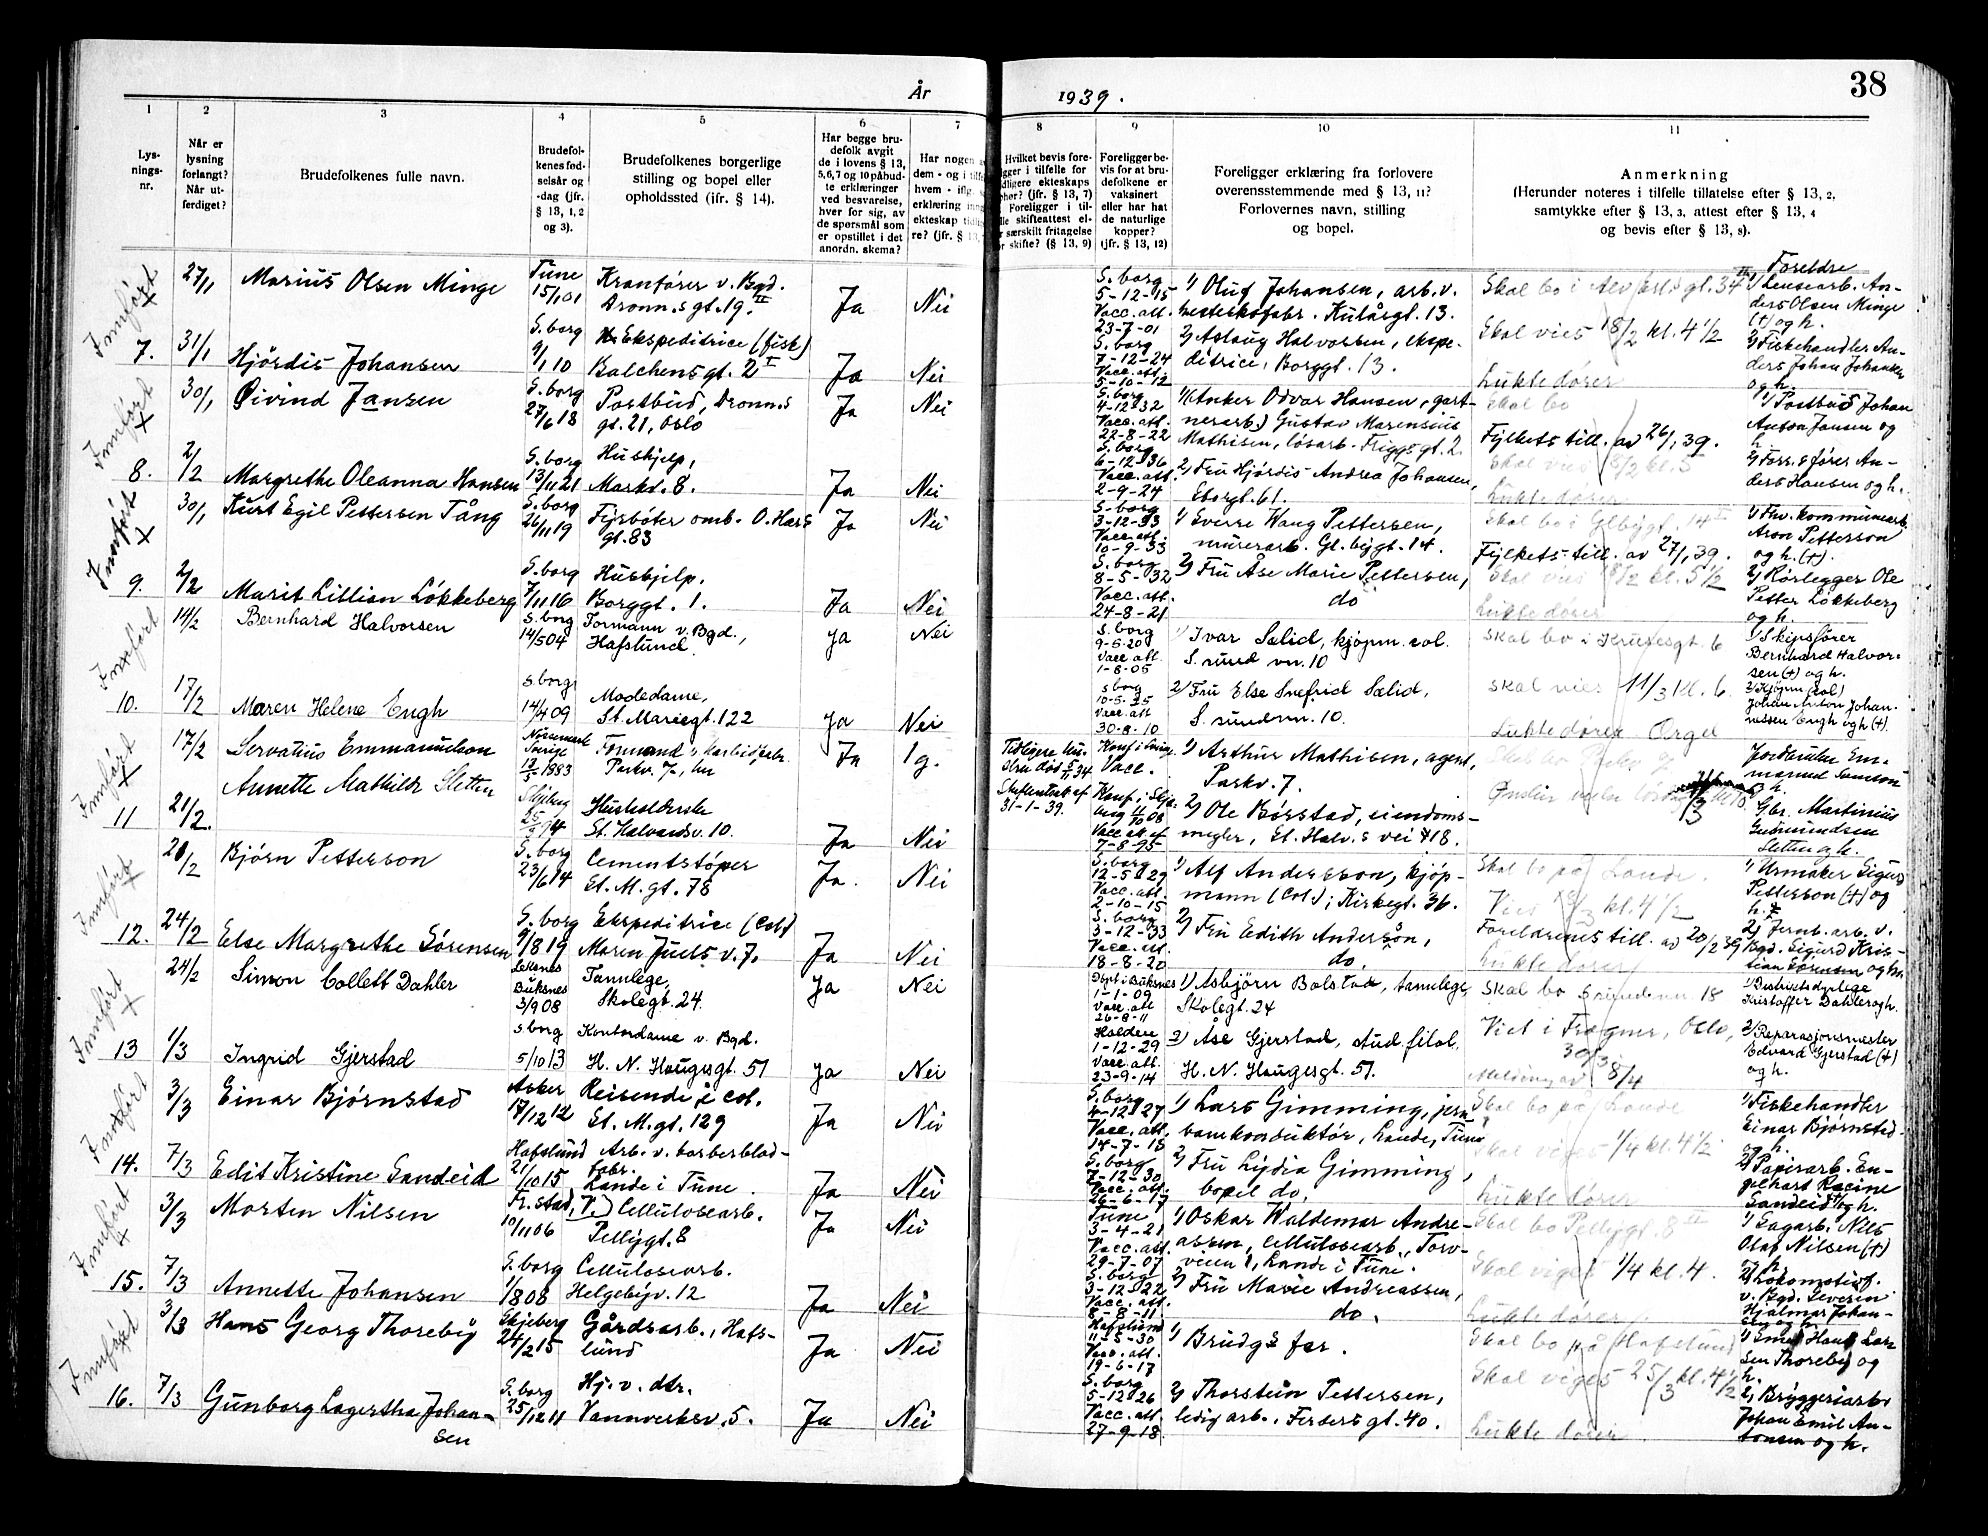 38
År
1939.
1
2
3
4
5
6
7
8
9
10
11
Lys-
nings-
nr.
Når er
lysning
forlangt?
Når ut-
ferdiget?
Brudefolkenes fulle navn.
Brudefol-
kenes fød-
selsår og
-dag (jfr.
§ 13, 1, 2
og 3).
Brudefolkenes borgerlige
stilling og bopel eller
opholdssted (jfr. § 14).
Har begge bru-
defolk avgit
de i lovens § 13,
5,6,7 og 10 påbud-
te erklæringer
ved besvarelse,
hver for sig, av
de spørsmål som
er opstillet i det
anordn. skema?
Har nogen
dem - og i
hvem -
erklæring
ekteskap
re? (jfr. § 13
Hvilket bevis fore-
i tilfelle for
ekteskaps
(jfr. § 13, 7)
Foreligger i til-
skifteattest el-
særskilt fritagelse
skifte? (§ 13, 9)
Foreligger be-
vis for at bru-
defolkene er
vaksinert
eller har hat
de naturlige
kopper?
(jfr. § 13, 12)
Foreligger erklæring fra forlovere
overensstemmende med § 13, 11?
Forlovernes navn, stilling
og bopel.
Anmerkning
(Herunder noteres i tilfelle tillatelse efter § 13, 2,
samtykke efter § 13, 3, attest efter § 13, 4
og bevis efter § 13, 8).
Foreldre
Innført
7.
27/1
Marius Olsen Minge
Tune
15/1 01
Kranfører v. Bgd.
Dronn.s gt. 19. II
Ja
Nei
S.borg
5-12-15
Vacc.att.
23-7-01
1) Oluf Johansen, arb. v.
Kulåsgt. 13.
Skal vies 18/2 kl. 4 1/2
ders Olsen Minge
(+) og h.
31/1
Hjördis Johansen
S.borg
9/1 10
Ekspeditrice (fisk)
Balchensgt. 2 I
Ja
Nei
S.borg
7-12-24
Vacc.att.
5-10-12
2) Aslaug Halvorsen, ekspe-
ditrice, Borggt. 13.
Lukte dører
2) Fiskehandler An-
ders Johan Johansen
og h.
Innført
8.
30/1
Øivind Jansen
S.borg
27/6 18
Postbud, Dronn.s
gt. 21, Oslo
Ja
Nei
S.borg
4-12-32
Vacc.att.
22-8-22
1) (Anker Odvar Hansen, gart-
nerarb.) Gustav Marensius
Mathisen, løsarb. Friggs gt. 2.
Skal bo
Fylkets till. av 26/1 39.
1) Postbud Johan
Anton Jansen og
h.
2/2
Margrethe Oleanna Hansen
S.borg
13/11 21
Hushjelp,
Markv. 8.
Ja
Nei
S.borg
6-12-36
Vacc.att.
2-9-24
2) Fru Hjørdis Andrea Johansen,
Eborgt. 61.
Lukte dører
ders Hansen og h.
Innført
9.
30/1
Kurt Egil Pettersen Tång
S.borg
26/11 19
Fyrbøter omb. O. Hars
gt. 83
Ja
Nei
S.borg
3-12-33
Vacc.att.
10-9-33
1) Sverre Wang Pettersen,
murerarb. Gl. bygt. 14.
Skal bo i Glbygt. 14
Fylkets till. av 27/1 39.
1) Fhv. kommunearb.
Aron Petterson
og h. (+).
2/2
Marit Lillian Løkkeberg
S.borg
7/11 16
Hushjelp.
Borggt. 1.
Ja
Nei
S.borg
8-5-32
Vacc.att.
24-8-21
2) Fru Åse Marie Pettersen,
do
Skal vies 18/2 kl. 5 1/2
Lukte dører
2) Rørlegger Ole
Petter Løkkeberg
og h.
Innført
10.
14/2
Bernhard Halvorsen
S.borg
14/5 04
Formann v. Bgd.,
Hafslund
Ja
Nei
S.borg
9-5-20
Vacc.att.
1-8-05
1) Ivar Sælid, kjøpm. col.
S.sund vn. 10
Skal bo i Krusesgt. 6
1) Skipsfører
Bernhard Halvor-
sen (+) og h.
17/2
Maren Helene Engh
S.borg
14/4 09
Modedame,
St. Mariegt. 122
Ja
Nei
S.borg
10-5-25
Vacc.att.
30-8-10
2) Fru Else Snefrid Sælid,
S.sundvn. 10.
Skal vies 11/3 kl. 6.
Lukte dører Orgel
2) Kjøpm. (col)
Johan Anton Johan-
nessen Engh og h (+).
Innført
11
17/2
Servatius Emmanuelson
Sverige
1883
Formand v. karbidfabr.
Parkv. 7, Tune
Ja
Ig.
Tidligere hus-
tru død
Skifteattest af
31-1-39.
Vacc.
1) Arthur Mathisen, agent,
Parkv. 7.
Jordbruker Em-
manuel Samson
h.
21/2.
Annette Mathilde Sletten
Skjeberg
Husholderske
St. Halvardsv. 10.
Ja
Nei
Vacc.att. af
7-8-95
2) Ole Børstad, eiendoms-
megler, St. Halv.s vei 18.
Gbr. Martinius
Gudmundsen
Sletten og h.
Innført
12.
20/2
Bjørn Petterson
S.borg
23/6 14
Cementstøper
St. M. gt. 78
Ja.
Nei
S.borg
12-5-29
Vacc.att.
2-10-15
1) Alf Andersson, kjøp-
mann (col.), Kirkegt. 36.
Skal bo på Lande.
1) Urmaker Sigurd
Petterson (+) og
h.
24/2
Else Margrethe Sørensen
S.borg
9/8 19
Ekspeditrice (col)
Maren Juels v. 7.
Ja
Nei
S.borg
3-12-33
Vacc.att.
18-8-20
2) Fru Edith Anderson,
do.
Foreldrenes till. av 20/2 39
Lukte dører
2) Jernb. arb. v.
Bgd. Sigurd Kris-
tian Sørensen og h.
Innført
13
24/2
Simon Collett Dahler
Leknes
Buksnes
3/9 08
Tannlege,
Skolegt. 24.
Ja
Nei
Døpt i Buksnes
1-1-09
Vacc.att
26-8-11
1) Asbjörn Bolstad, tannlege,
Skolegt. 24
Skal bo Ssundsvn. 18
1) Distriktsdyrlege
Kristoffer Dahler og h.
1/3
Ingrid Gjerstad
S.borg
5/10 13
Kontordame v. Bgd.
H. N. Haugesgt. 51
Ja
Nei
Halden
1-12-29
Vacc.att.
23-9-14
2) Åse Gjerstad, stud. filol.
H. N. Haugesgt. 51.
Viet i Frogner, Oslo,
30/3.
Melding av 8/4
2) Reparasjonsmester
Edvard Gjerstad (+)
og h.
Innført
14.
3/3
Einar Bjørnstad
Asker
17/12 12
Reisende i col.
St. M. gt. 129
Ja
Nei
S.borg
4-12-27
Vacc.att.
14-7-15
1) Lars Gimming, jern-
banekonduktør, Lande, Tune
Skal bo på Lande
Skal vies 1/4 kl. 4 1/2
1) Fiskehandler
Einar Bjørnstad
og h.
7/3
Edit Kristine Sandeid
Hafslund
21/10 15
Arb. v. barberblad-
fabr.
Lande i Tune
Ja
Nei
S.borg
7-12-30
Vacc.att.
26-6-17
2) Fru Lydia Gimming,
bopel do.
Lukte dører
2) Papirarb. En-
gelhart Racine
Sandeid og h.
Innført
15.
3/3
Morten Nilsen
Fr.stad, V.
10/11 06
Cellulosearb.
Pellygt. 8
Ja
Nei
Tune
3-4-21
Vacc.att.
29-7-07
1) Oskar Waldemar Andre-
assen, cellulosearb., Torv-
veien 1, Lande i Tune.
Skal bo Pellygt. 8 II
Skal viges 1/4 kl. 4.
1) Sagarb. Nils
Olaf Nilsen (+)
og h.
7/3
Annette Johansen
S.borg
1/8 08
Cellulosearb.
Helgebyv. 12
Ja
Nei
S.borg
3-12-22
Vacc.att.
8-8-11
2) Fru Marie Andreassen,
do.
Lukte dører
2) Lokomotivf.
v. Bgd. Severin
Hjalmar Johan-
sen og h.
Innført
16.
3/3
Hans Georg Thoreby
Skjeberg
24/2 15
Gårdsarb., Hafs-
lund
Ja
Nei
Hafslund
11-5-30
Vacc.att.
19-6-17
1) Brudg.s far.
Skal bo på Hafslund
Skal viges 25/3 kl. 4 1/2
sen Thoreby og
h.
7/3
Gunborg Lagertha Johan-
sen
S.borg
25/12 11
Hj. v. dtr.
Vannverksv. 5.
Ja
Nei
S.borg
5-12-26
Vacc.att.
27-9-18.
2) Thorstein Pettersen,
ledig arb., Ferders gt. 40.
Lukte dører.
2) Bryggeriarb.
Johan Emil An-
tonsen og h.